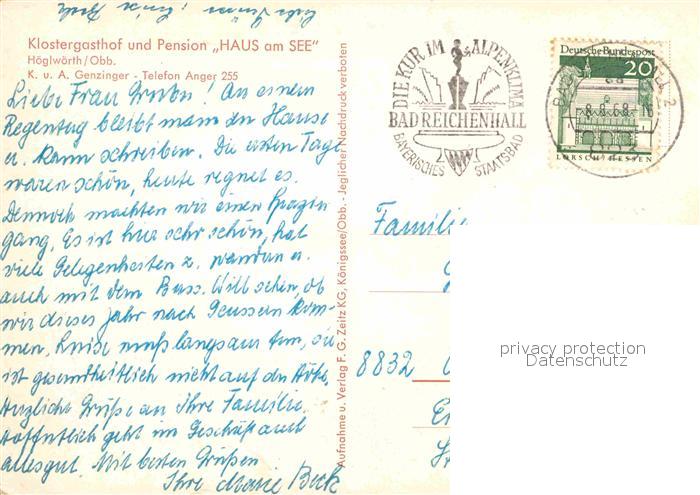 Klostergasthof und Pension „HAUS am SEE"
Höglwörth/Obb.
K. u. A. Genzinger - Telefon Anger 255
Liebe Frau! An einem
Regentag bleibt man im Hause
u. kann schreiben. Die ersten Tage
waren schön, heute regnet es.
Dennoch machten wir einen Spazier
gang. Es ist hier sehr schön, hat
viele Gelegenheiten z. wandern u.
auch mit dem Bus. Will sehen, ob
wir dieses Jahr nach kom-
men, Luise muß langsam tun, sie
ist gesundheitlich nicht auf der Höhe.
Herzliche Grüße an Ihre Familie.
Hoffentlich geht im Geschäft auch
alles gut. Mit besten Grüßen
Ihre Marie Beck
Aufnahme u. Verlag F. G. Zeitz KG, Königssee/Obb. - Jeglicher Nachdruck verboten
DIE KUR IM ALPENKLIMA
BAD REICHENHALL
BAYERISCHES STAATSBAD
Deutsche Bundespost
20
LORSCH/HESSEN
2
Familie
8832
privacy protection
Datenschutz